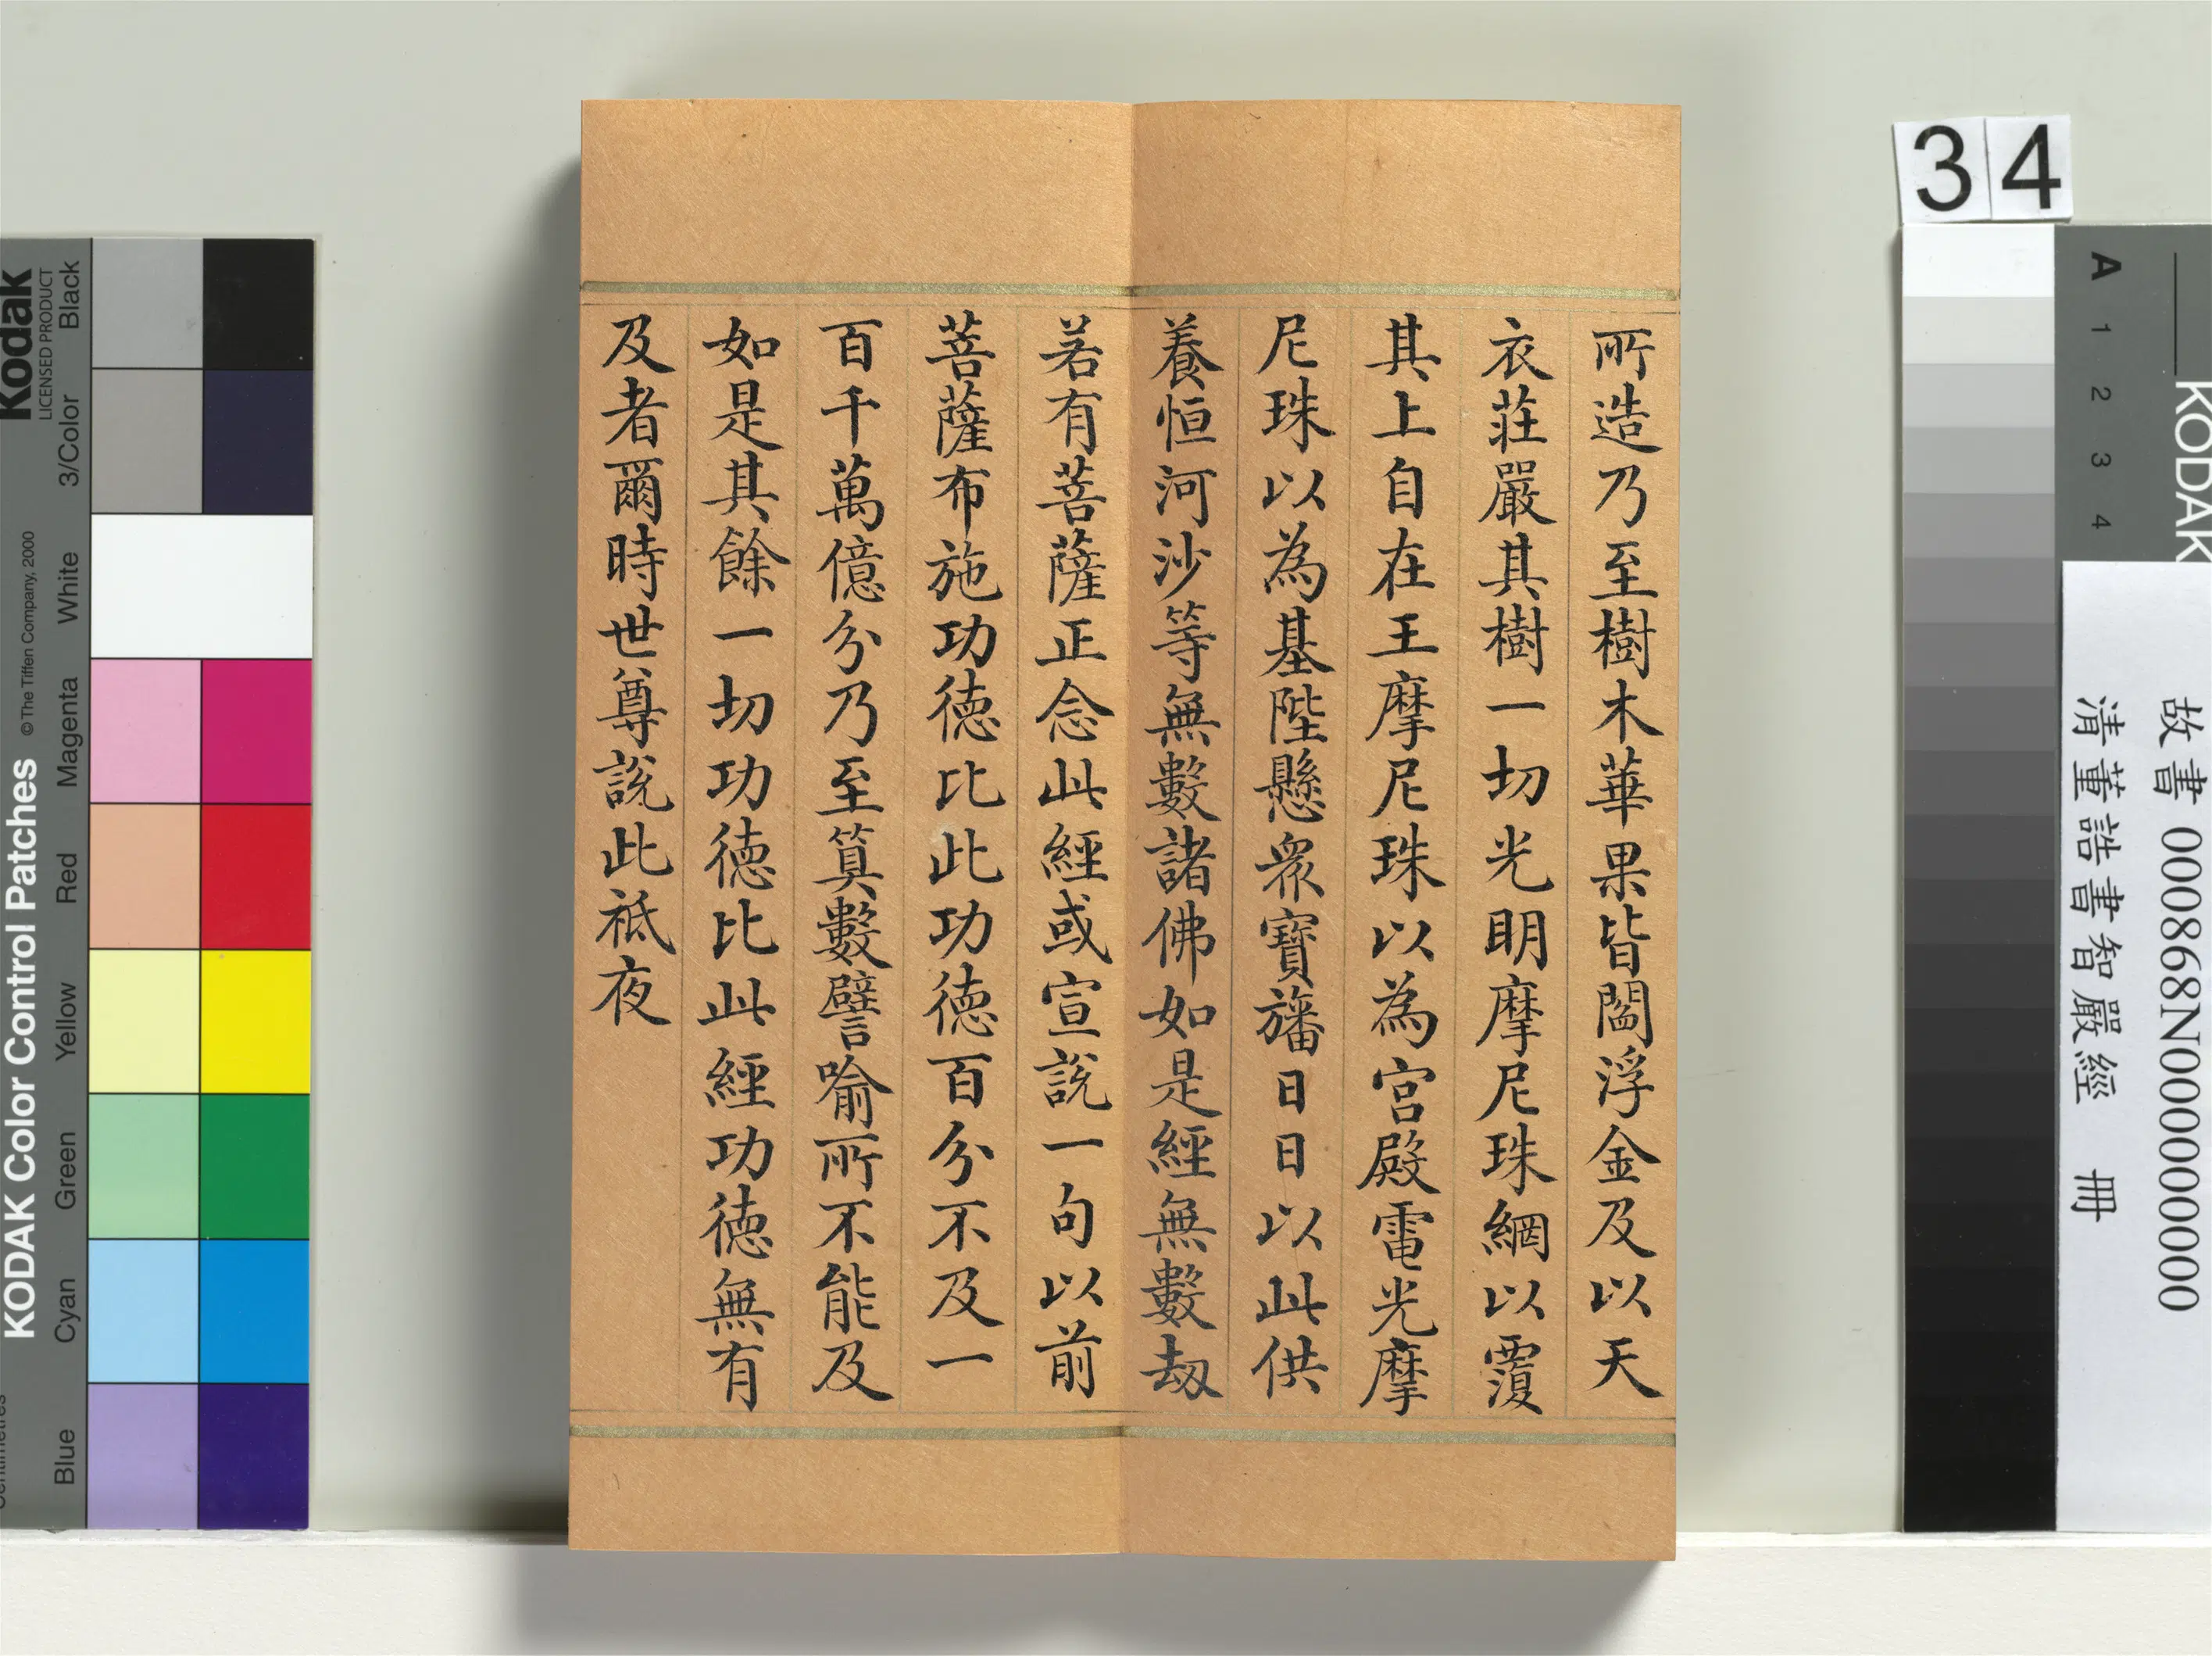 所造乃至樹木華果皆閻浮金及以天
衣莊嚴其樹一切光明摩尼珠網以覆
其上自在王摩尼珠以為宮殿電光摩
尼珠以為基陛懸眾寶旛日日以此供
養恒河沙等無數諸佛如是經無數劫
若有菩薩正念此經或宣說一句以前
菩薩布施功德比此功德百分不及一
百千萬億分乃至算數譬喻所不能及
如是其餘一切功德比此經功德無有
及者爾時世尊說此祇夜
34
故書 000868N000000000
清董誥書智嚴經 冊
KODAK
A 1 2 3 4
Kodak
LICENSED PRODUCT
KODAK Color Control Patches
©The Tiffen Company, 2000
Blue Cyan Green Yellow Red Magenta White 3/Color Black